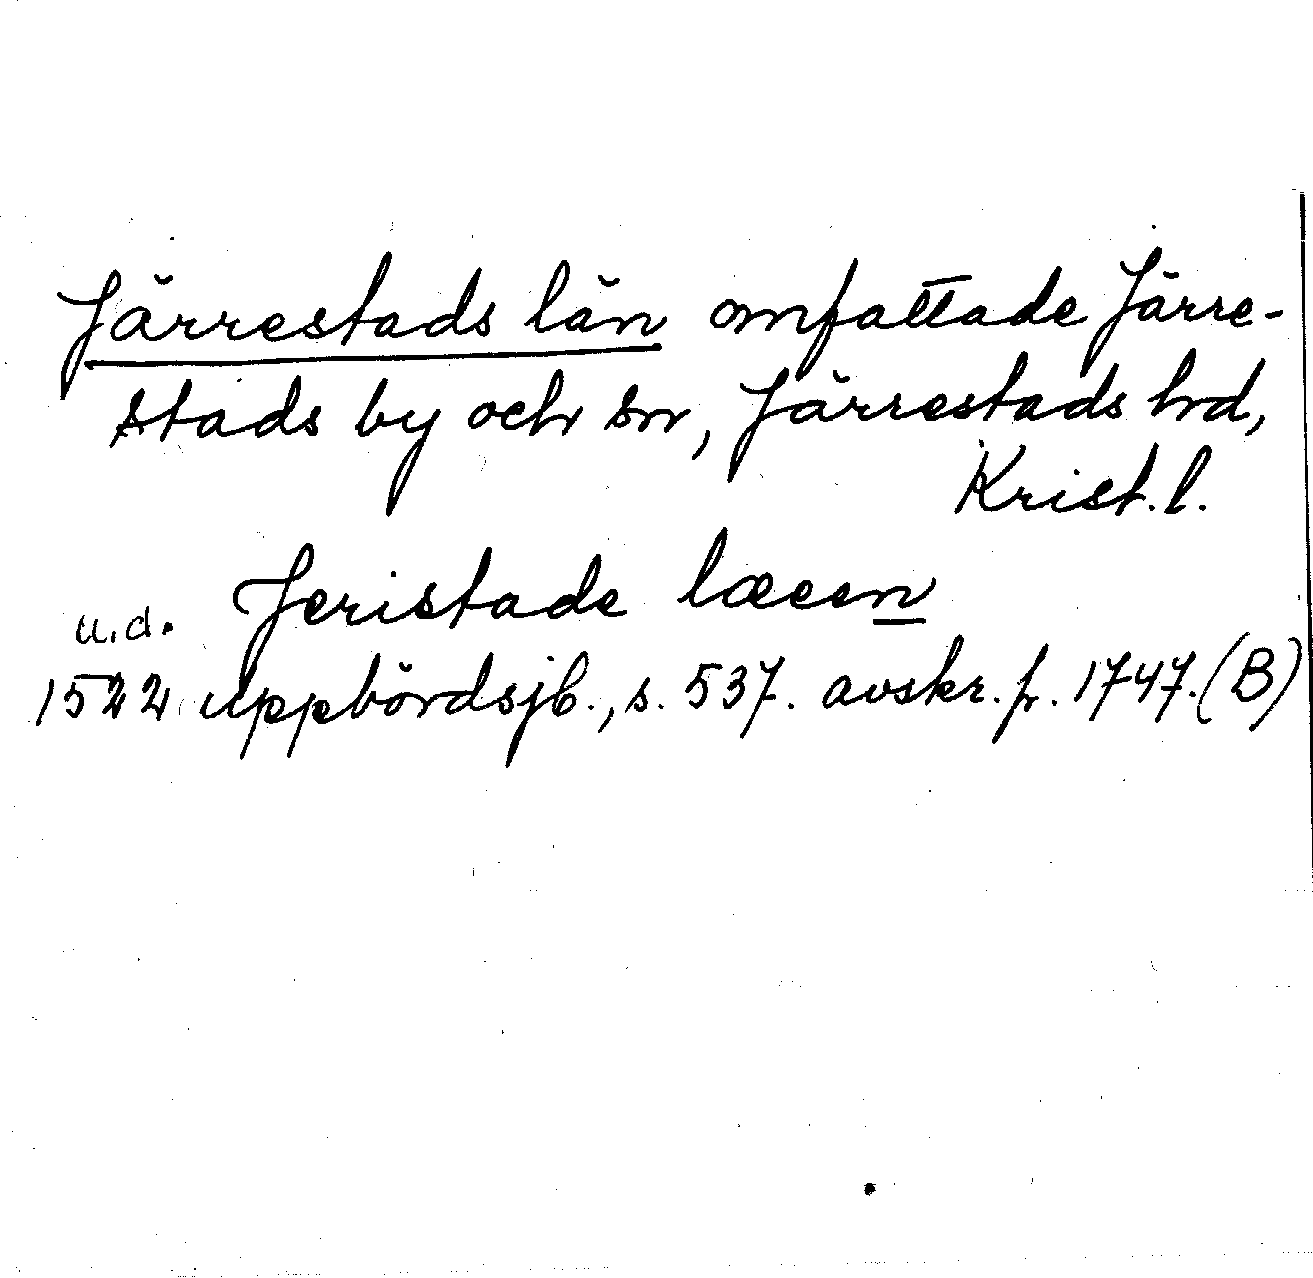 Järrestads län omfattade Järre-
stads by och sn, Järrestads hd,
Krist. l.
u.d. Jeristade læen
1522 uppbördsjb., s. 537. avskr. fr. 1747. (B)